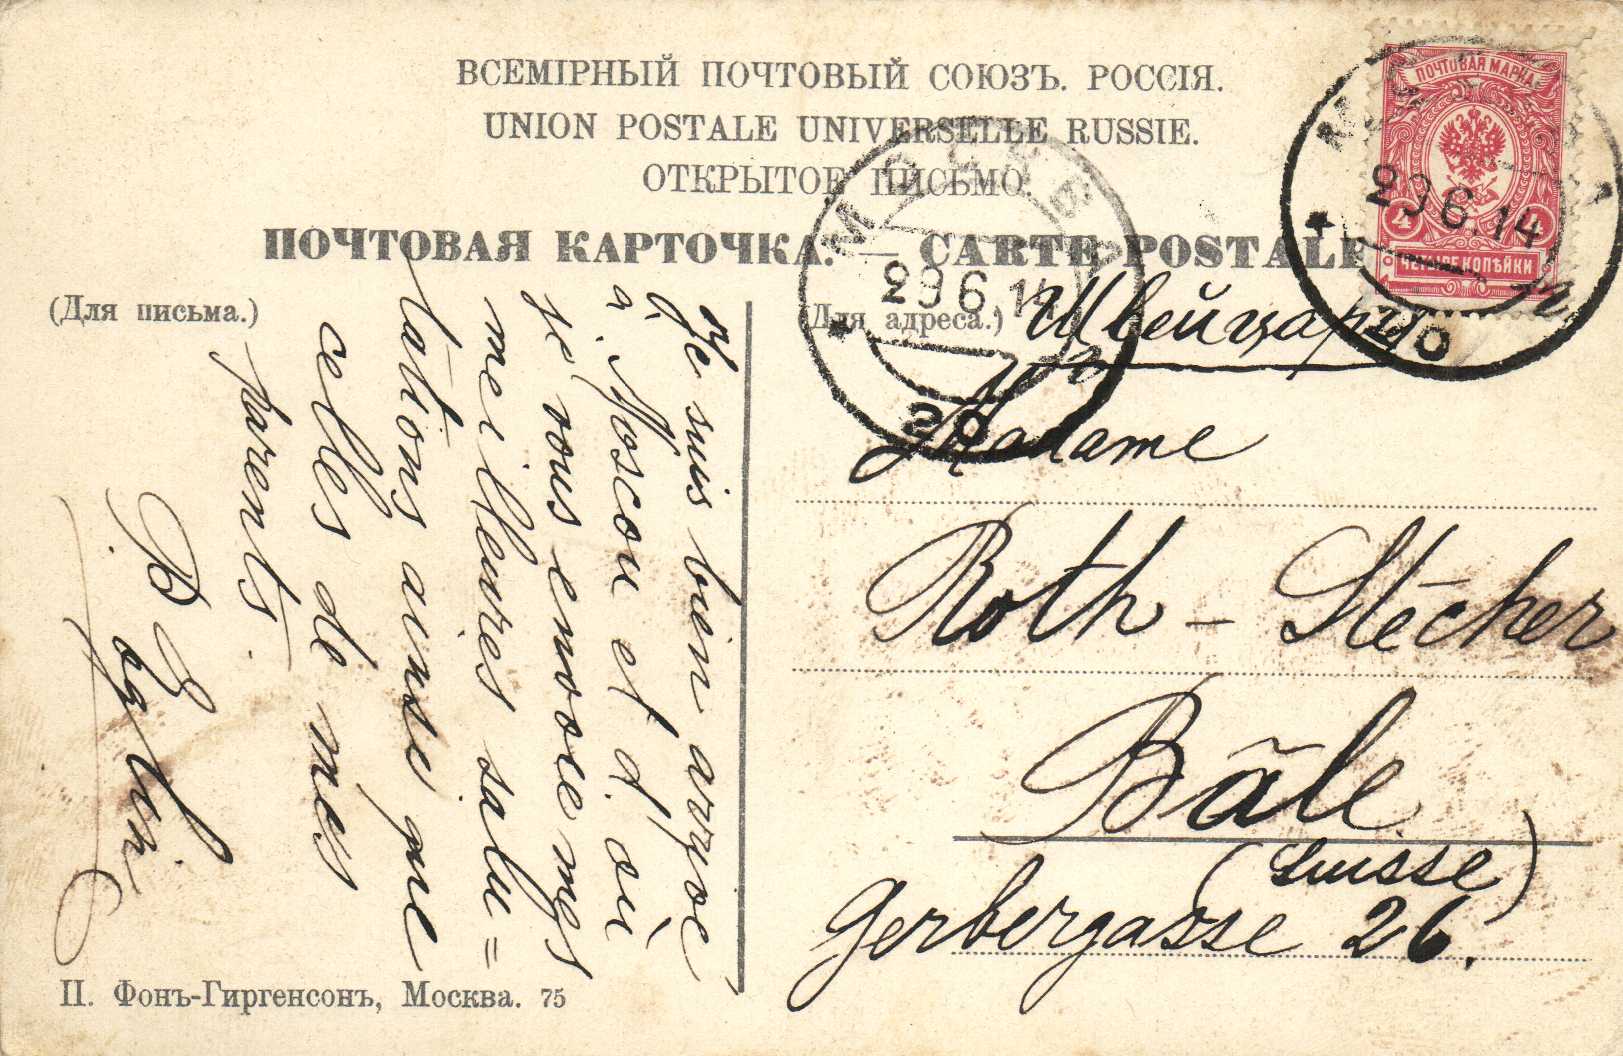 ВСЕМІРНЫЙ ПОЧТОВЫЙ СОЮЗЪ. РОССІЯ.
UNION POSTALE UNIVERSELLE RUSSIE.
ОТКРЫТОЕ ПИСЬМО.
ПОЧТОВАЯ КАРТОЧКА. — CARTE POSTALE
ПОЧТОВАЯ МАРКА
4 4
ЧЕТЫРЕ КОПѢЙКИ
МОСКВА
29 6.14
20
МОСКВА
29 6 14
20
(Для письма.)
(Для адреса.)
Je suis bien arrivée
à Moscou et d'où
je vous envoie mes
meilleures salu=
tations ainsi que
celles de mes
parents.
Швейцарія
Madame
Roth - Stécher
Bâle
(Suisse)
Gerbergasse 26.
П. Фонъ-Гиргенсонъ, Москва. 75